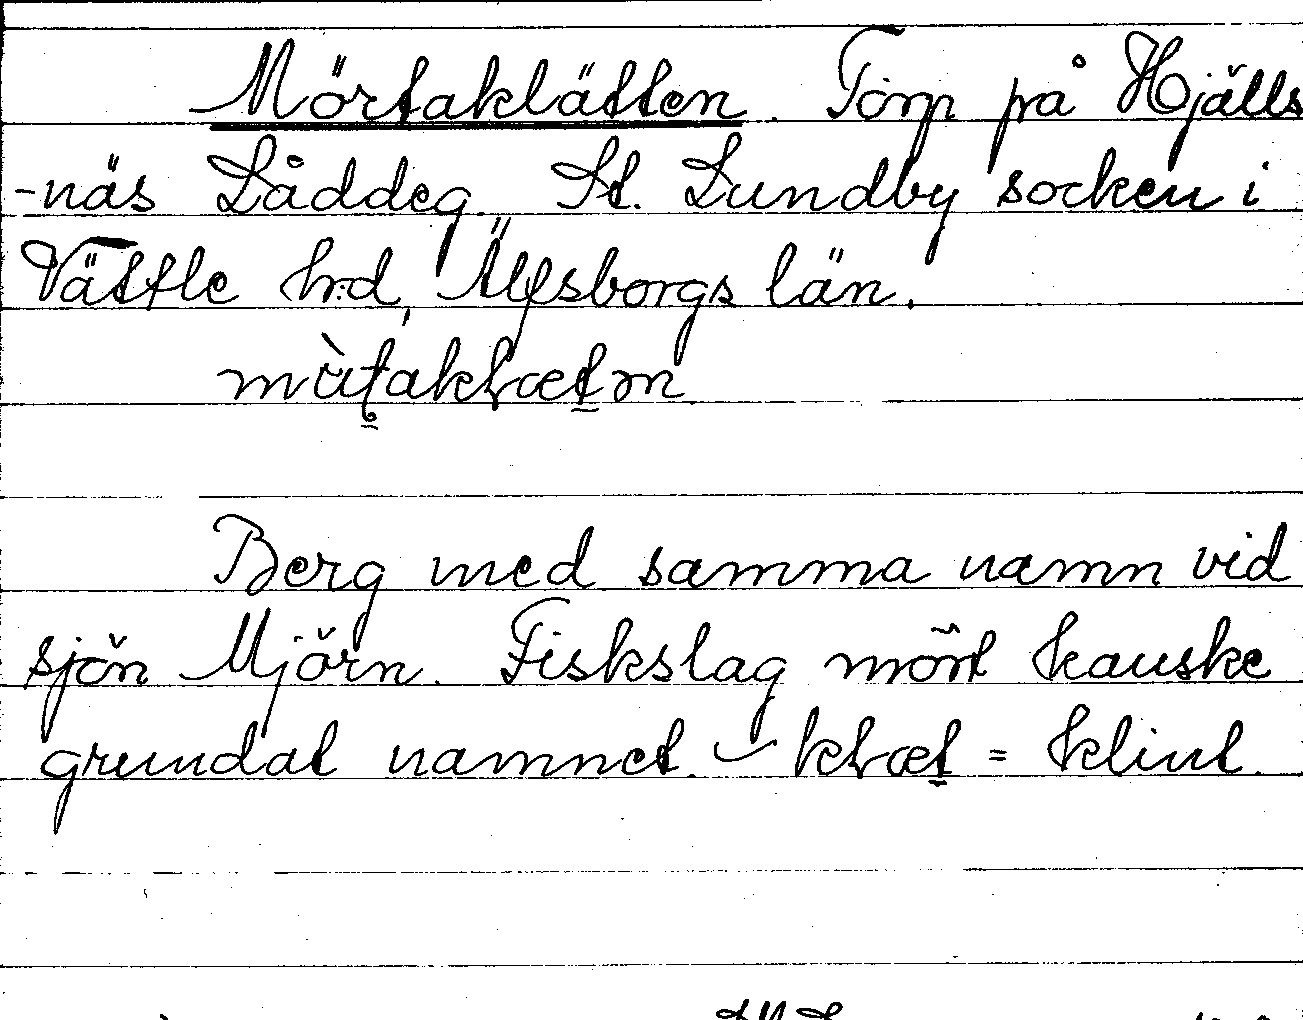 Mörtaklätten. Torp på Hjälls
-näs Låddeg. St. Lundby socken i
Vättle hrd, Älfsborgs län.
Berg med samma namn vid
sjön Mjörn. Fiskslag mört kanske
grundat namnet. = klint.